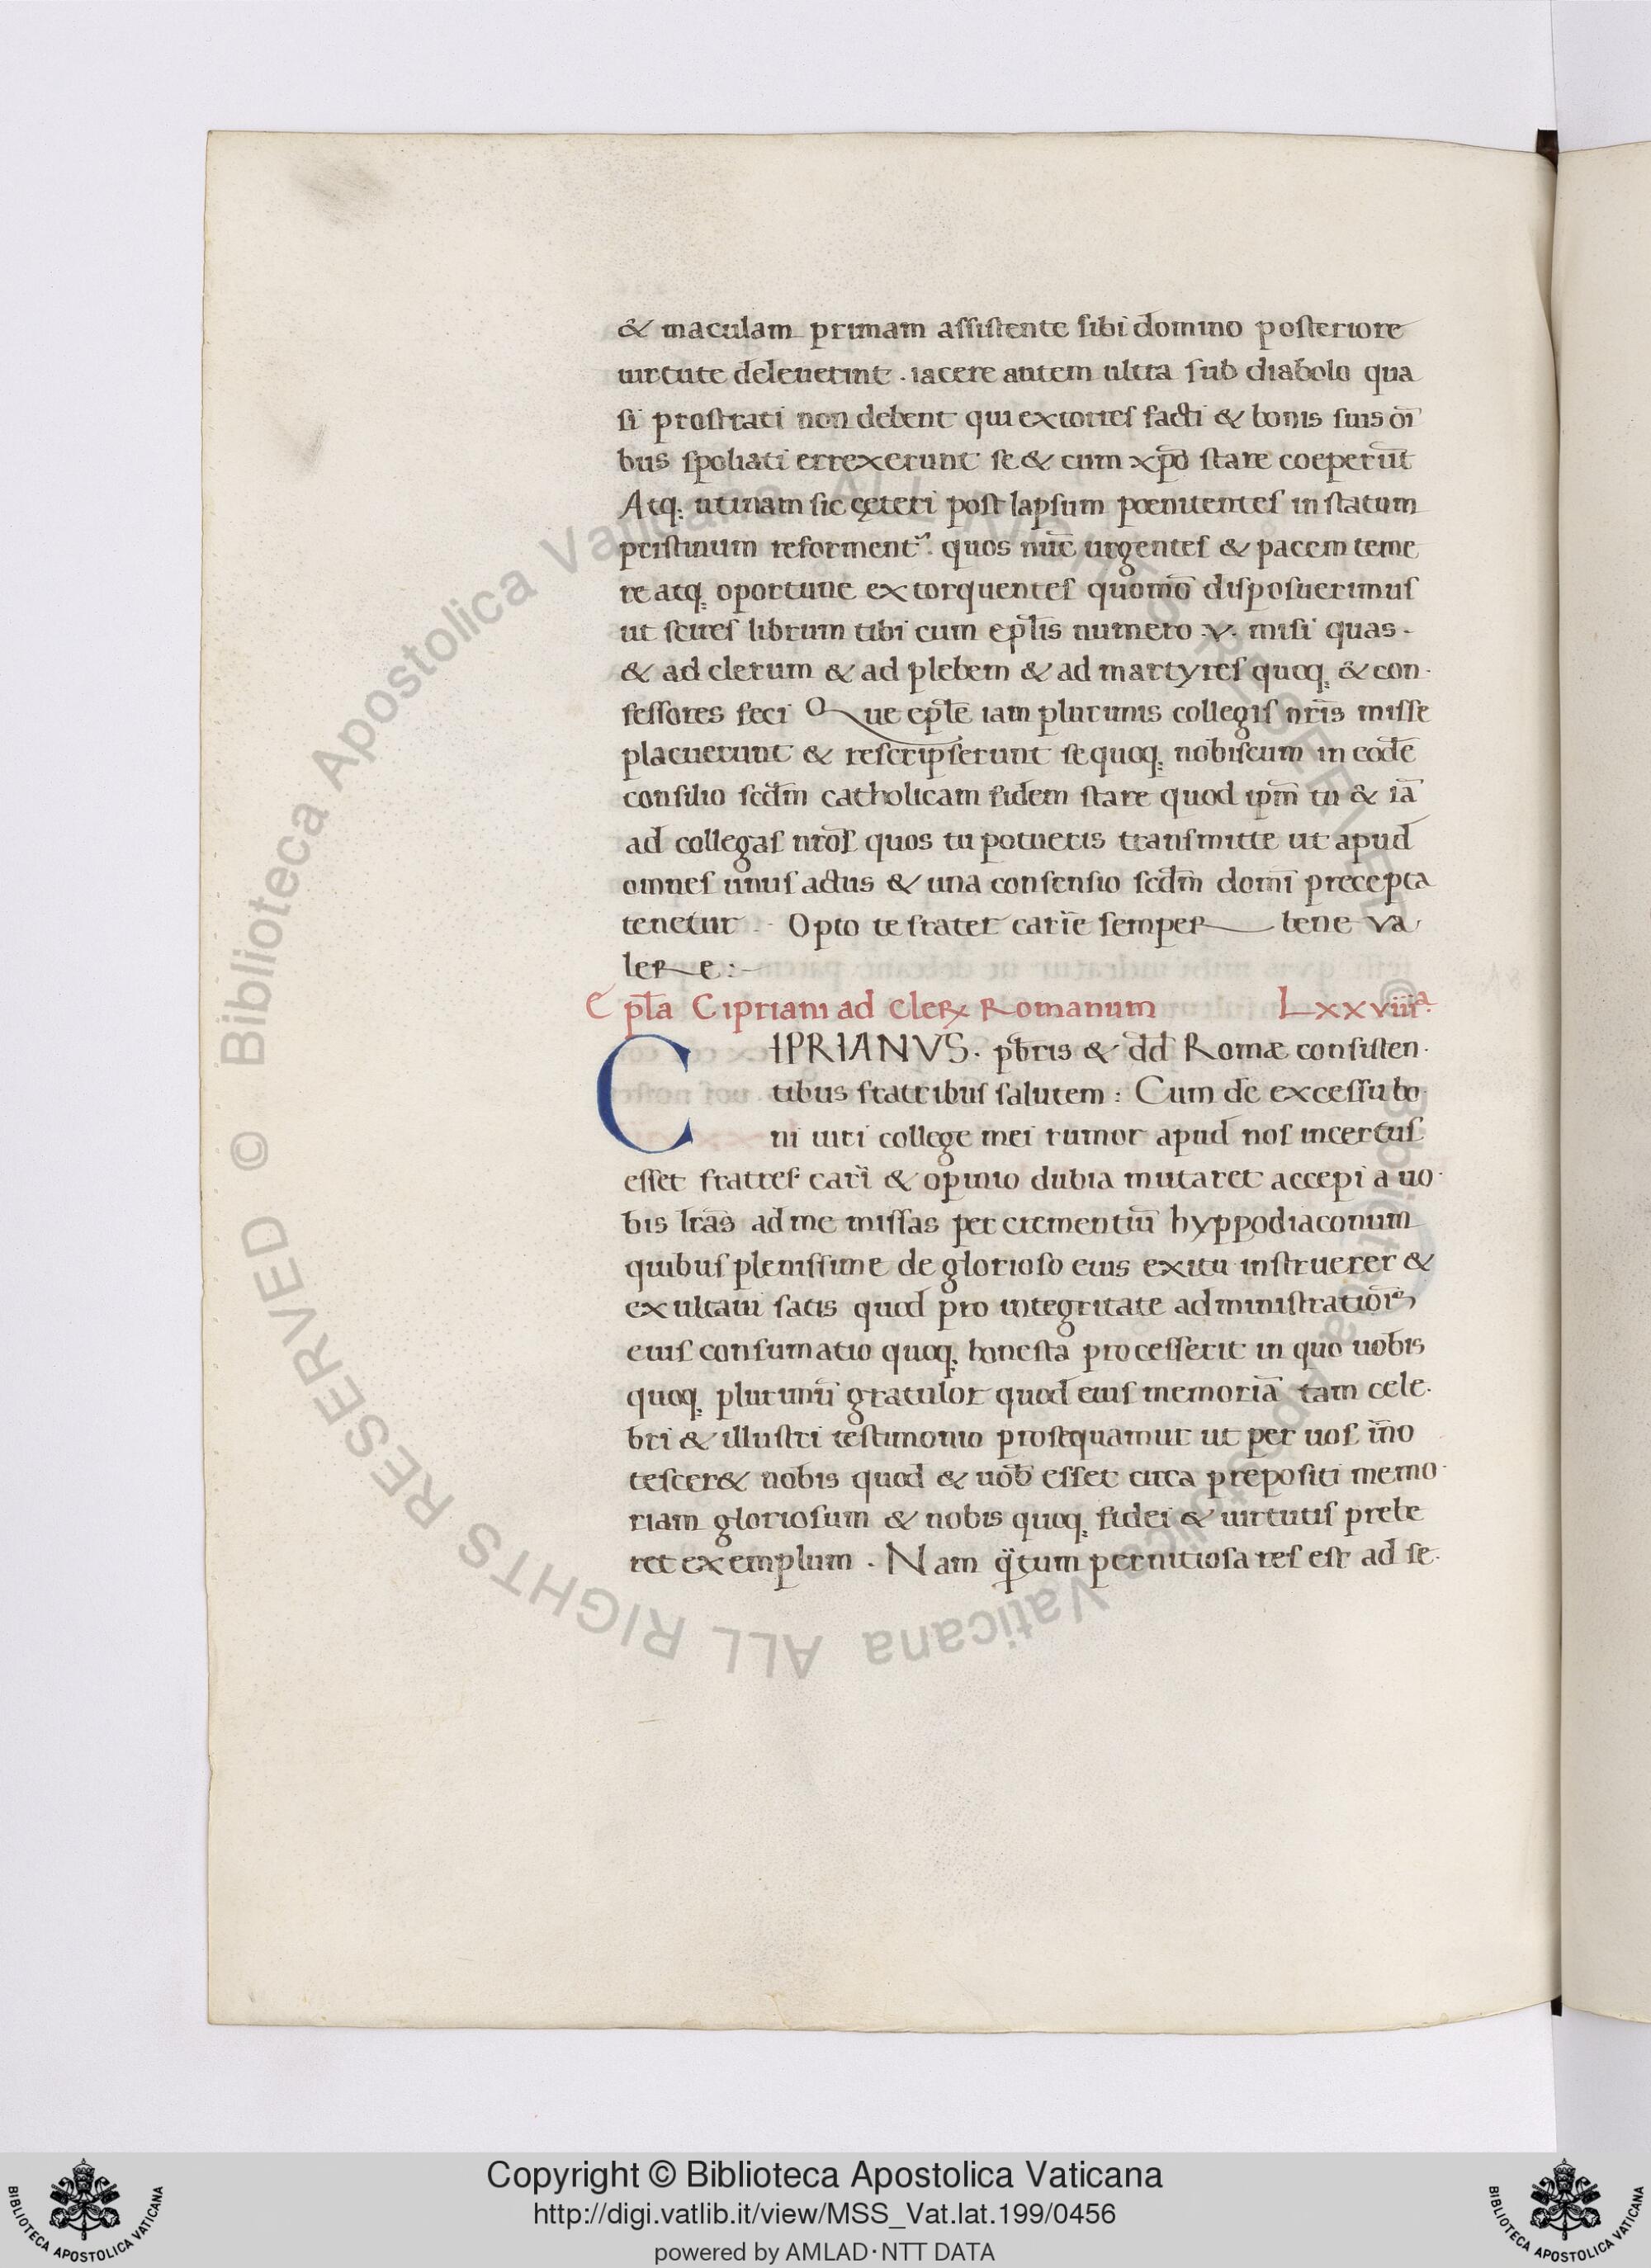 & maculam primam assistente sibi domino posteriore
uirtute deleuerint . iacere autem ultra sub diabolo qua
si prostrati non debent qui extorres facti & bonis suis oī
bus spoliati errexerunt se & cum xp̄o stare coeperūt
Atq; utinam sic cęteri post lapsum pœnitentes in statum
pristinum reforment᷑. quos nūc urgentes & pacem teme
re atq; oportune extorquentes quomō disposuerimus
ut scires librum tibi cum epl̄is numero .v. misi quas
& ad clerum & ad plebem & ad martyres quoq; & con
fessores feci Que epl̄e iam plurimis collegis nr̄is misse
placuerunt & rescripserunt se quoq; nobiscum in eodē
consilio scd̄m catholicam fidem stare quod ip̄m tu & iā
ad collegas nr̄os quos tu potueris transmitte ut apud
omnes unus actus & una consensio scd̄m domī precepta
tenetur . Opto te frater carīe semper bene va
lere :
Epl̄a Cipriani ad cleꝝ Romanum Lxxviiiiᵃ.
CIPRIANVS . pb̄ris & dd̄ Romæ consisten
tibus fratribus salutem : Cum de excessu bo
ni uiri college mei rumor apud nos incertus
esset fratres carī & opinio dubia mutaret accepi a uo
bis lr̄as ad me missas per crementiū hyppodiaconum
quibus plenissime de glorioso eius exitu instruerer &
exultaui satis quod pro integritate administratiōīs
eius consumatio quoq; honesta processerit in quo uobis
quoq; plurimū gratulor quod eius memoriā tam cele
bri & illustri testimonio prosequamur ut per uos īno
tescer& nobis quod & uob̄ esset circa prepositi memo
riam gloriosum & nobis quoq; fidei & uirtutis prebe
ret exemplum . Nam q̄tum pernitiosa res est ad se
© Biblioteca Apostolica Vaticana ALL RIGHTS RESERVED © Biblioteca Apostolica Vaticana ALL RIGHTS RESERVED
Copyright © Biblioteca Apostolica Vaticana
http://digi.vatlib.it/view/MSS_Vat.lat.199/0456
powered by AMLAD·NTT DATA
BIBLIOTECA APOSTOLICA VATICANA
BIBLIOTECA APOSTOLICA VATICANA